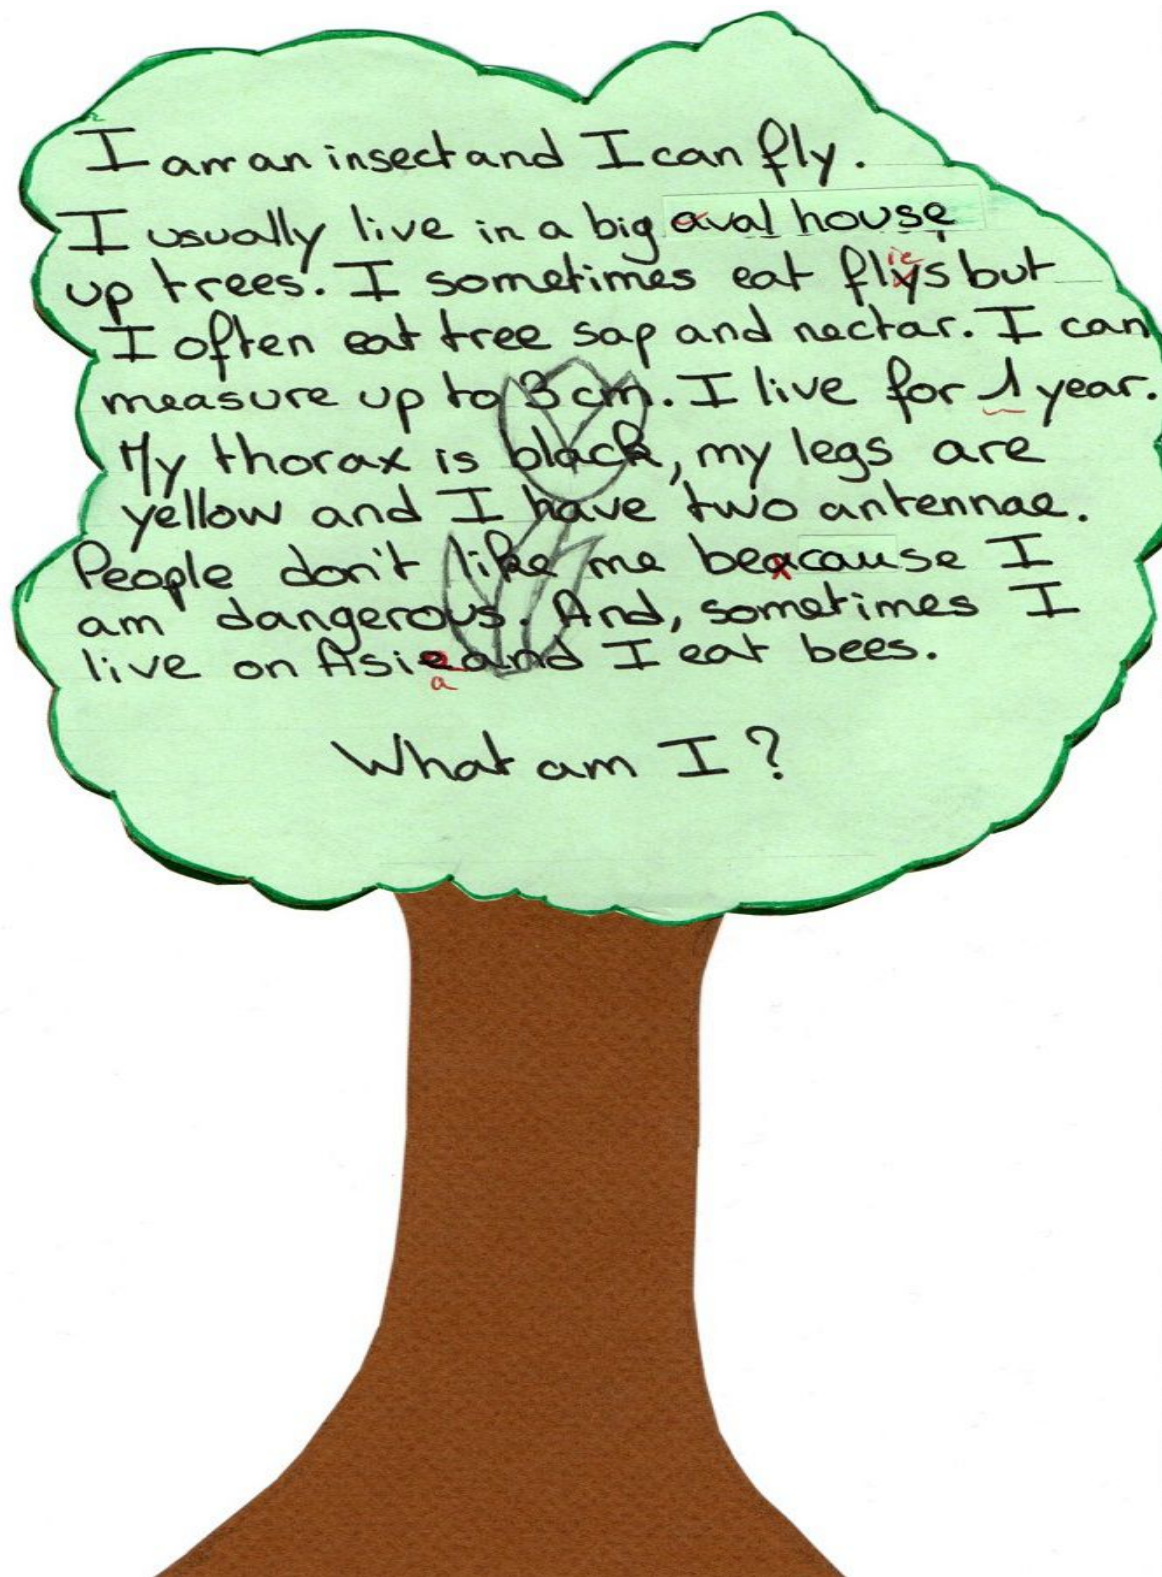 I am an insect and I can fly.
I usually live in a big aval house
up trees. I sometimes eat fliys but
I often eat tree sap and nectar. I can
measure up to 3 cm. I live for 1 year.
My thorax is black, my legs are
yellow and I have two antennae.
People don't like me beacause I
am dangerous. And, sometimes I
live on Asie and I eat bees.
a
What am I?